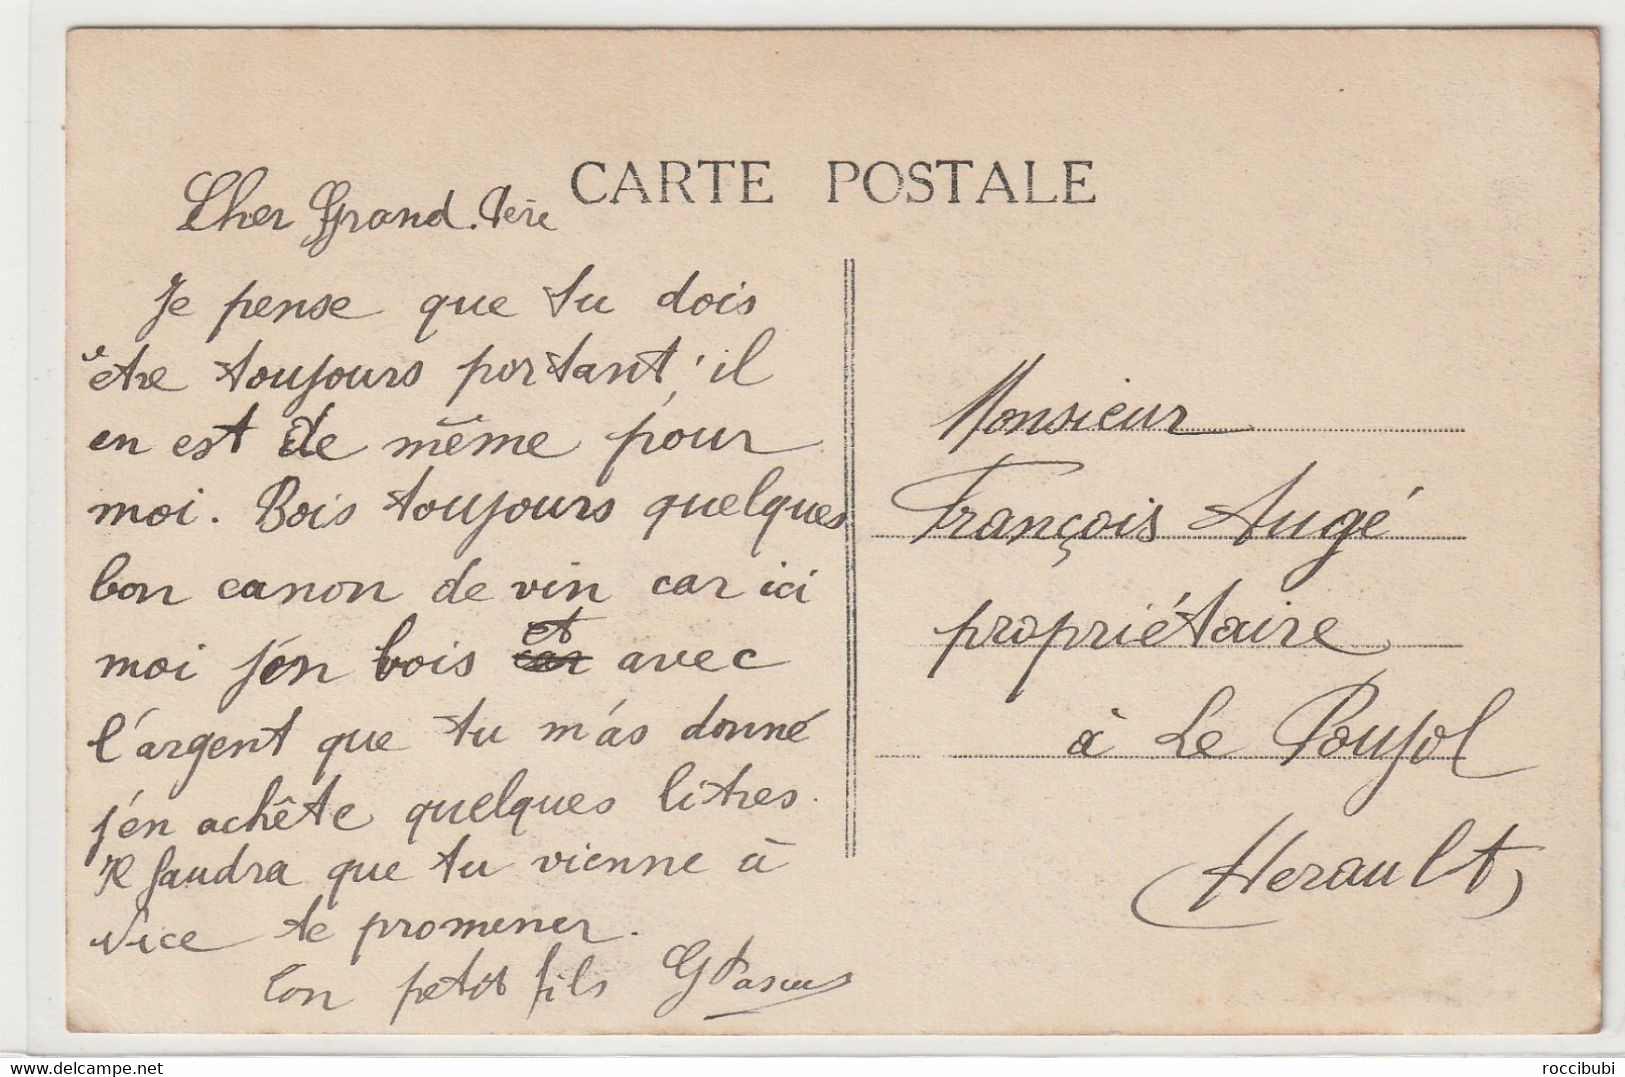 CARTE POSTALE
Cher Grand.Père
Je pense que tu dois
être toujours portant; il
en est de même pour
moi. Bois toujours quelques
bon canon de vin car ici
moi j'en bois et avec
l'argent que tu m'as donné
j'en achête quelques litres.
Il faudra que tu vienne à
Nice te promener.
Ton petit fils G
Monsieur
François Augé
propriétaire
à Le Poujol
(Herault)
www.delcampe.net
roccibubi